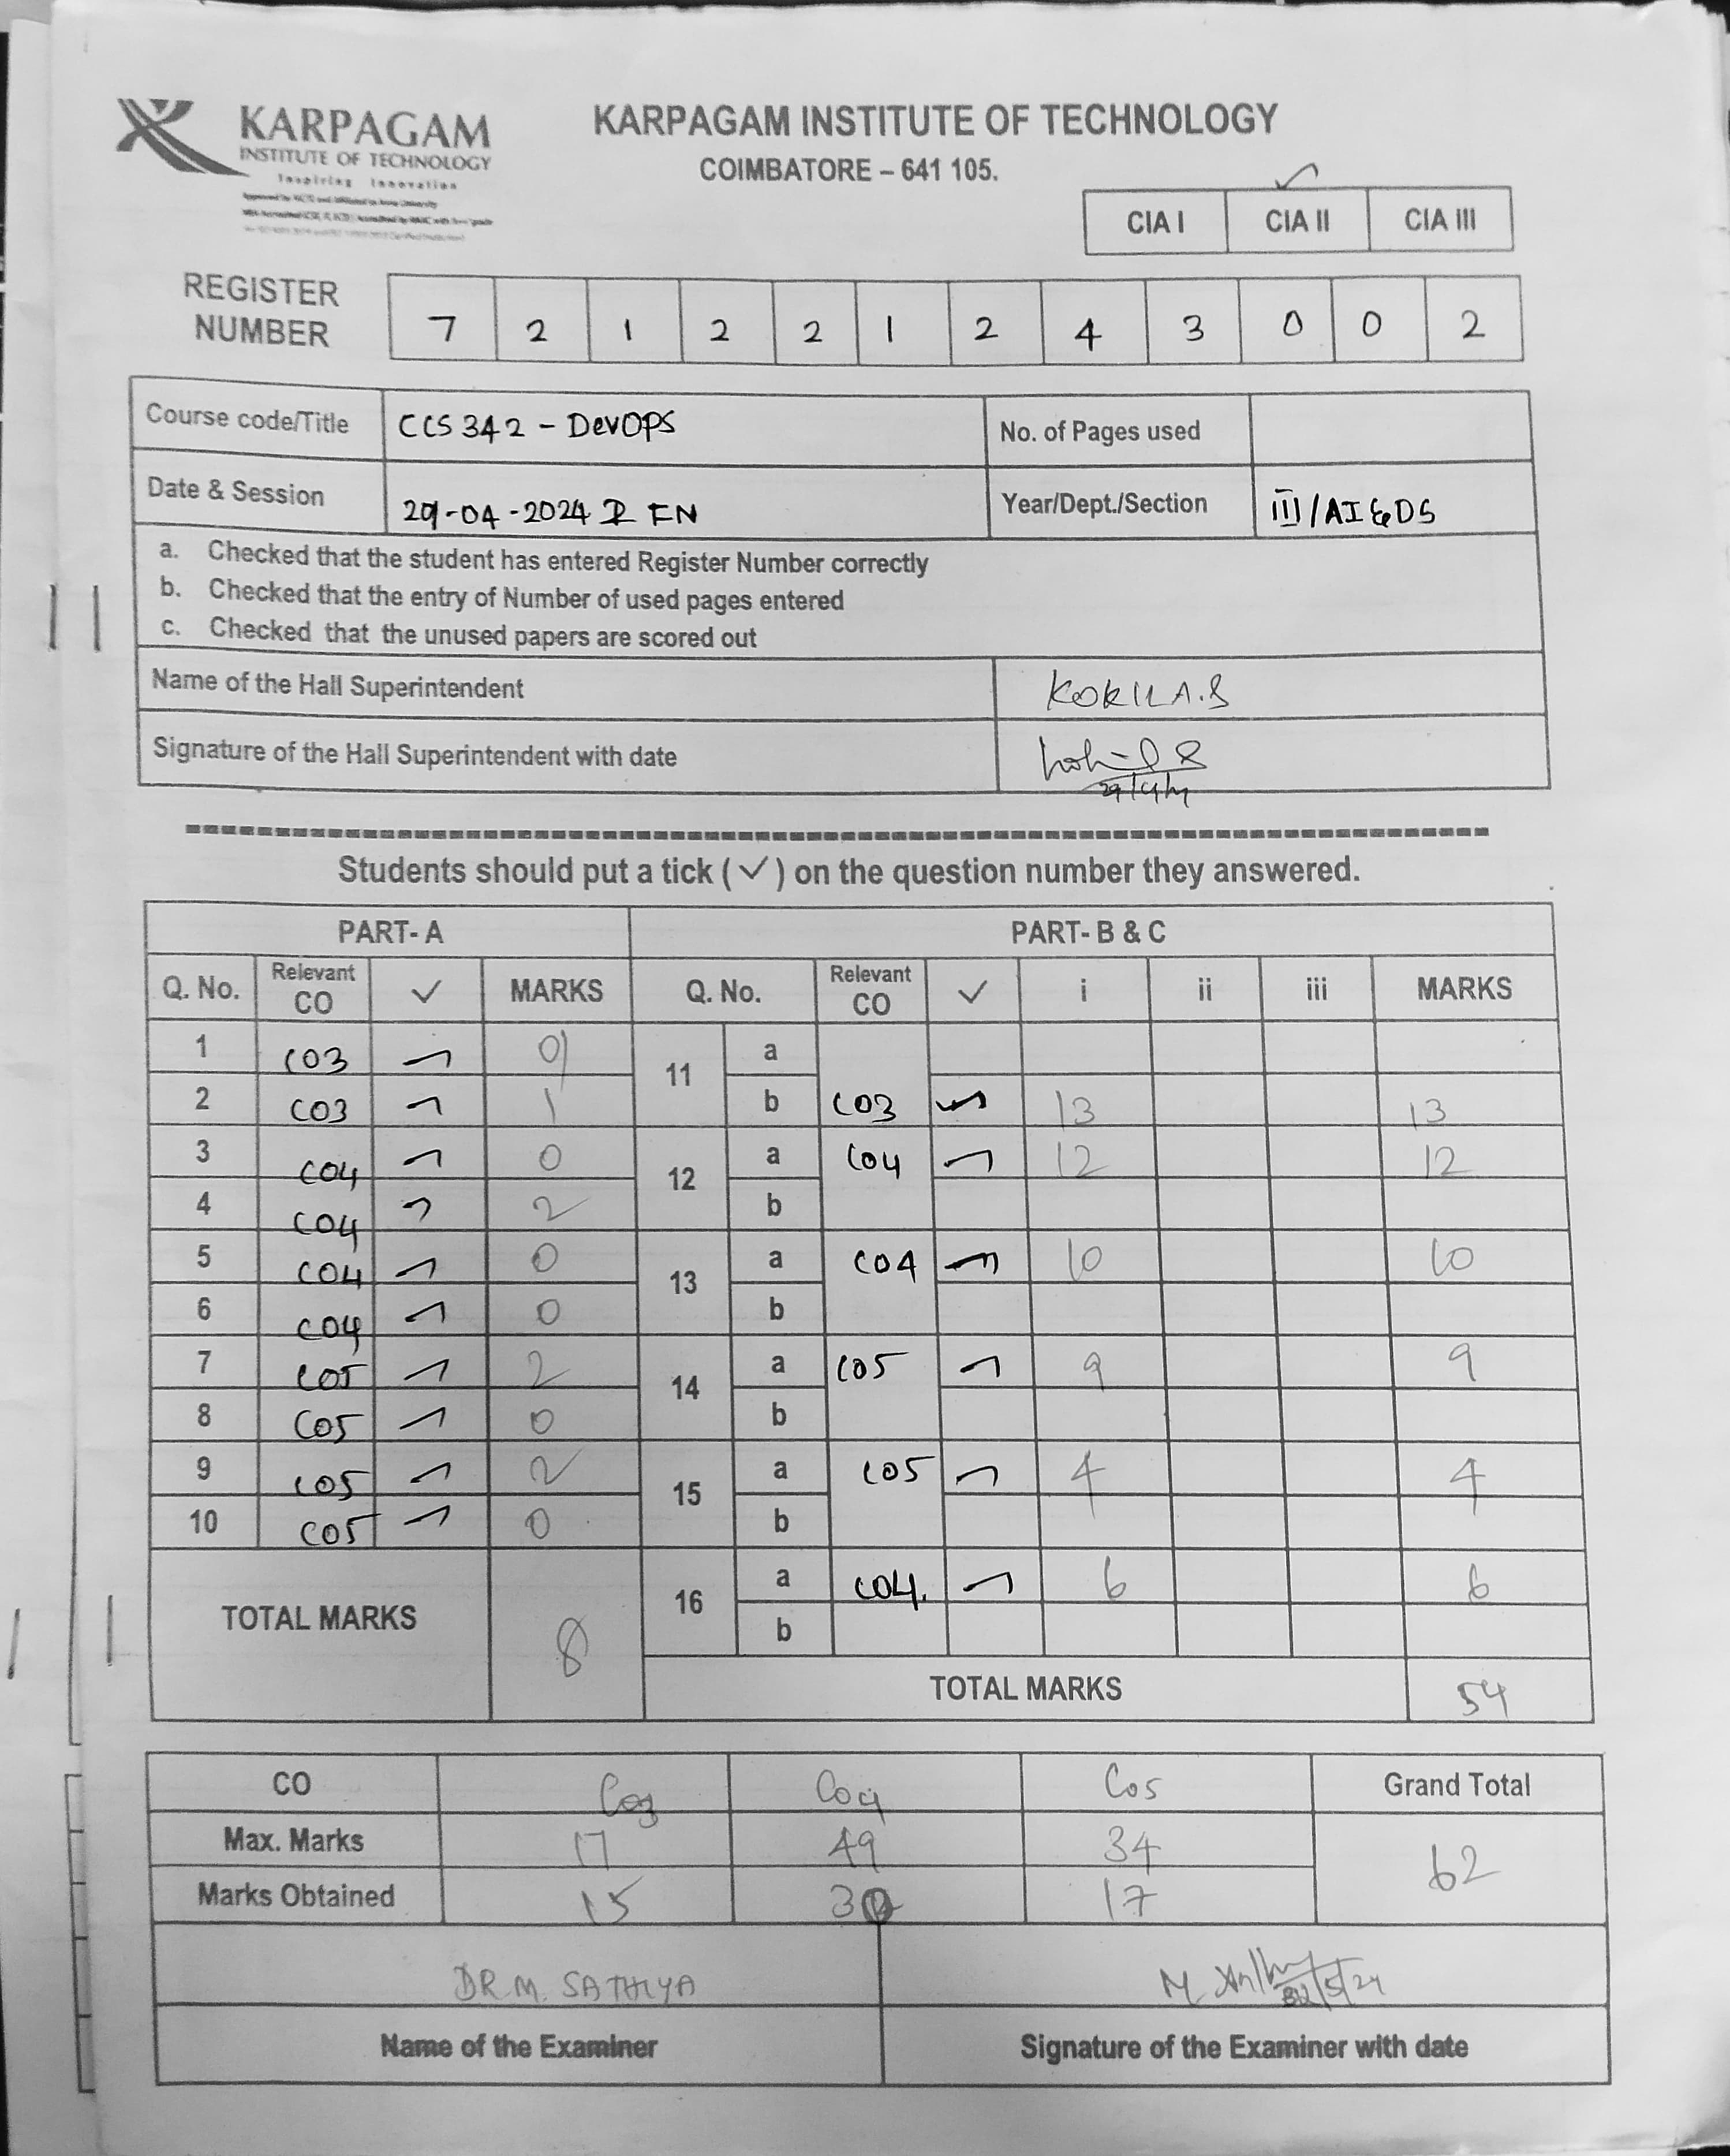 KARPAGAM
INSTITUTE OF TECHNOLOGY
Inspiring Innovation
KARPAGAM INSTITUTE OF TECHNOLOGY
COIMBATORE – 641 105.
✓
CIA I CIA II CIA III
REGISTER NUMBER 7 2 1 2 2 1 2 4 3 0 0 2
Course code/Title CCS342 - DevOPS No. of Pages used
Date & Session 29-04-2024 FN Year/Dept./Section III/AI&DS
a. Checked that the student has entered Register Number correctly
b. Checked that the entry of Number of used pages entered
c. Checked that the unused papers are scored out
Name of the Hall Superintendent KOKILA.S
Signature of the Hall Superintendent with date
Students should put a tick (✓) on the question number they answered.
PART- A PART- B & C
Q. No. Relevant CO ✓ MARKS Q. No. Relevant CO ✓ i ii iii MARKS
1 CO3 ✓ 0 11 a
2 CO3 ✓ 1 b CO3 ✓ 13 13
3 CO4 ✓ 0 12 a CO4 ✓ 12 12
4 CO4 ✓ 2 b
5 CO4 ✓ 0 13 a CO4 ✓ 10 10
6 CO4 ✓ 0 b
7 CO5 ✓ 2 14 a CO5 ✓ 9 9
8 CO5 ✓ 0 b
9 CO5 ✓ 2 15 a CO5 ✓ 4 4
10 CO5 ✓ 0 b
TOTAL MARKS 8 16 a CO4. ✓ 6 6
b
TOTAL MARKS 54
CO Co3 Co4 Co5 Grand Total
Max. Marks 17 49 34 62
Marks Obtained 15 30 17
DR.M. SATHIYA
Name of the Examiner Signature of the Examiner with date